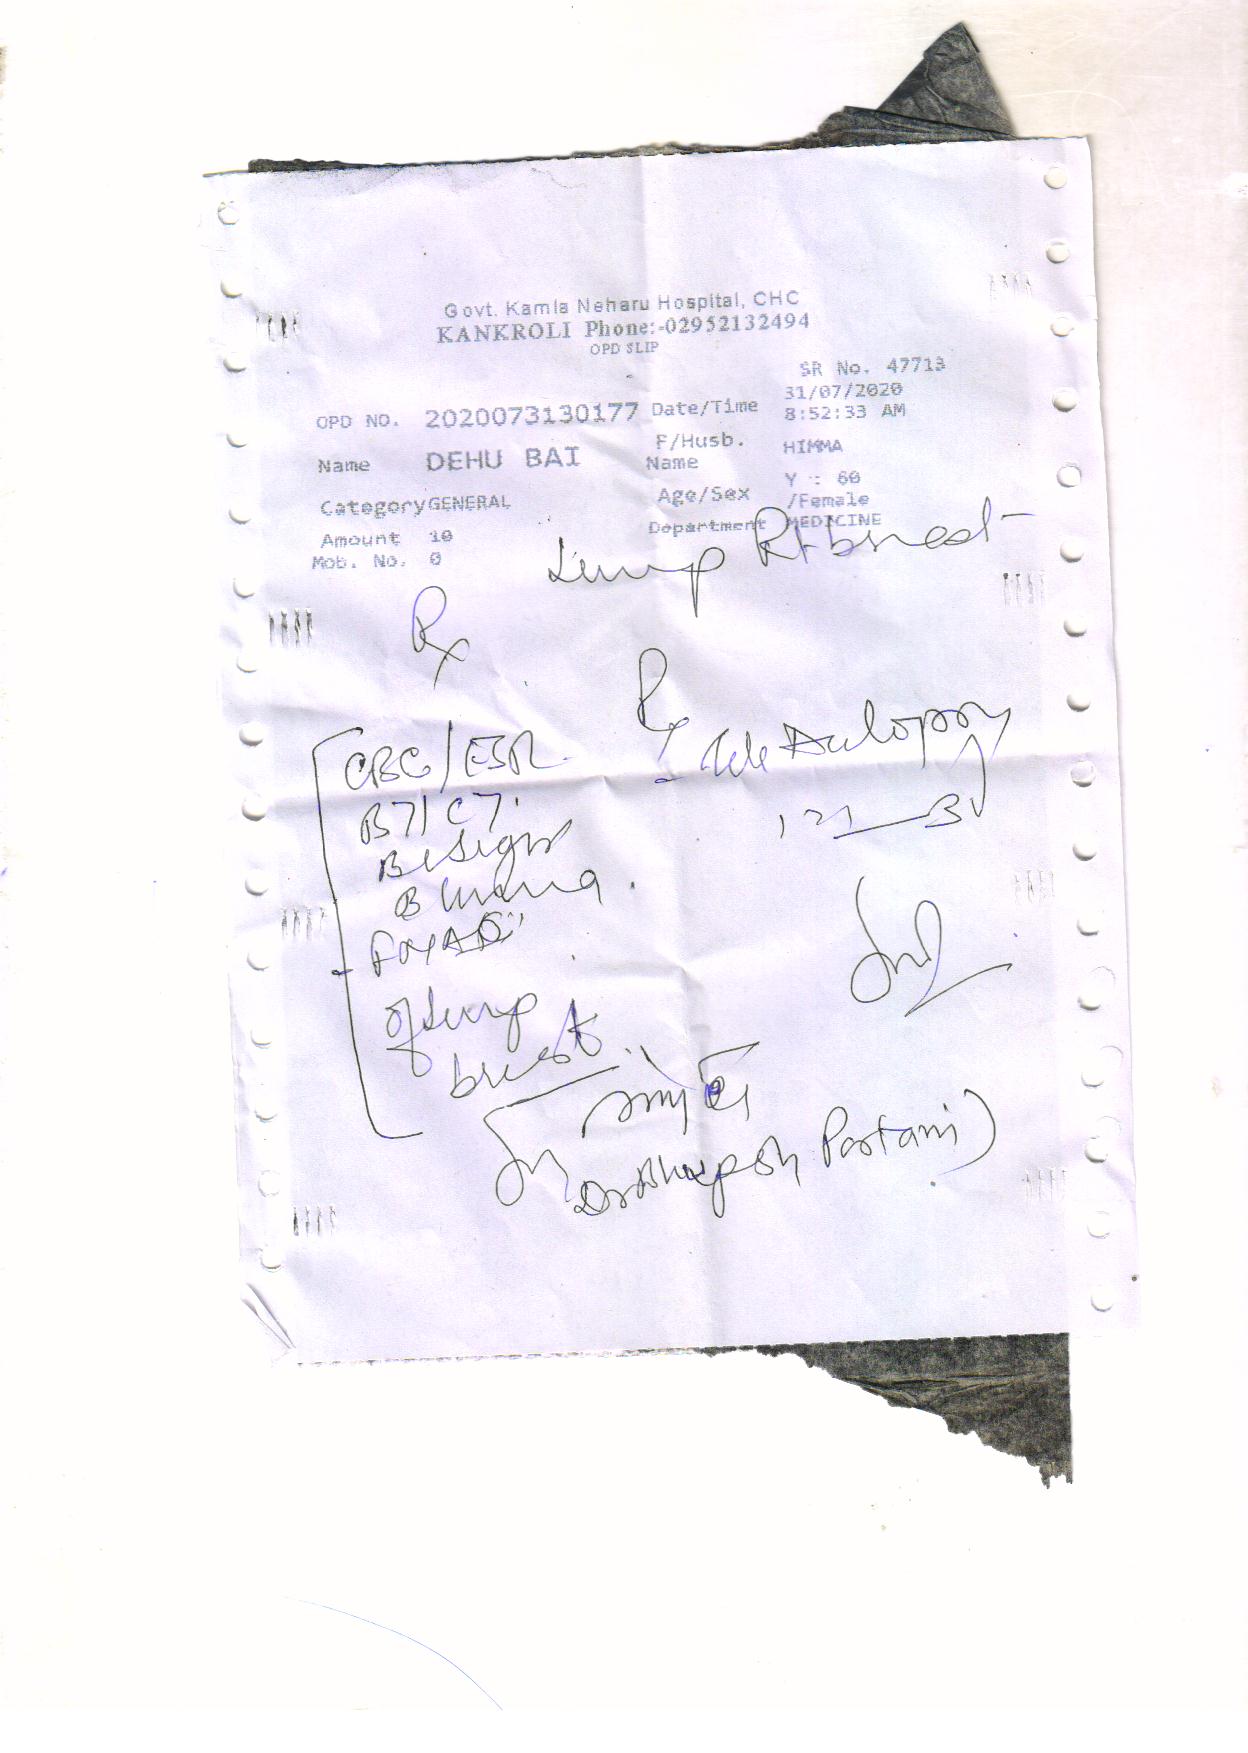 Govt. Kamla Neharu Hospital, CHC
KANKROLI Phone:-02952132494
OPD SLIP
SR No. 47713
OPD NO. 2020073130177 Date/Time 31/07/2020 8:52:33 AM
Name DEHU BAI F/Husb. Name HIMMA
Category GENERAL Age/Sex Y : 60 /Female
Amount 10 Department MEDICINE
Mob. No. 0
Lump Rt breast
Rx
Rx
CBC/ESR
BT/CT.
B Sugar
B Urea
FNAC
of lump
breast